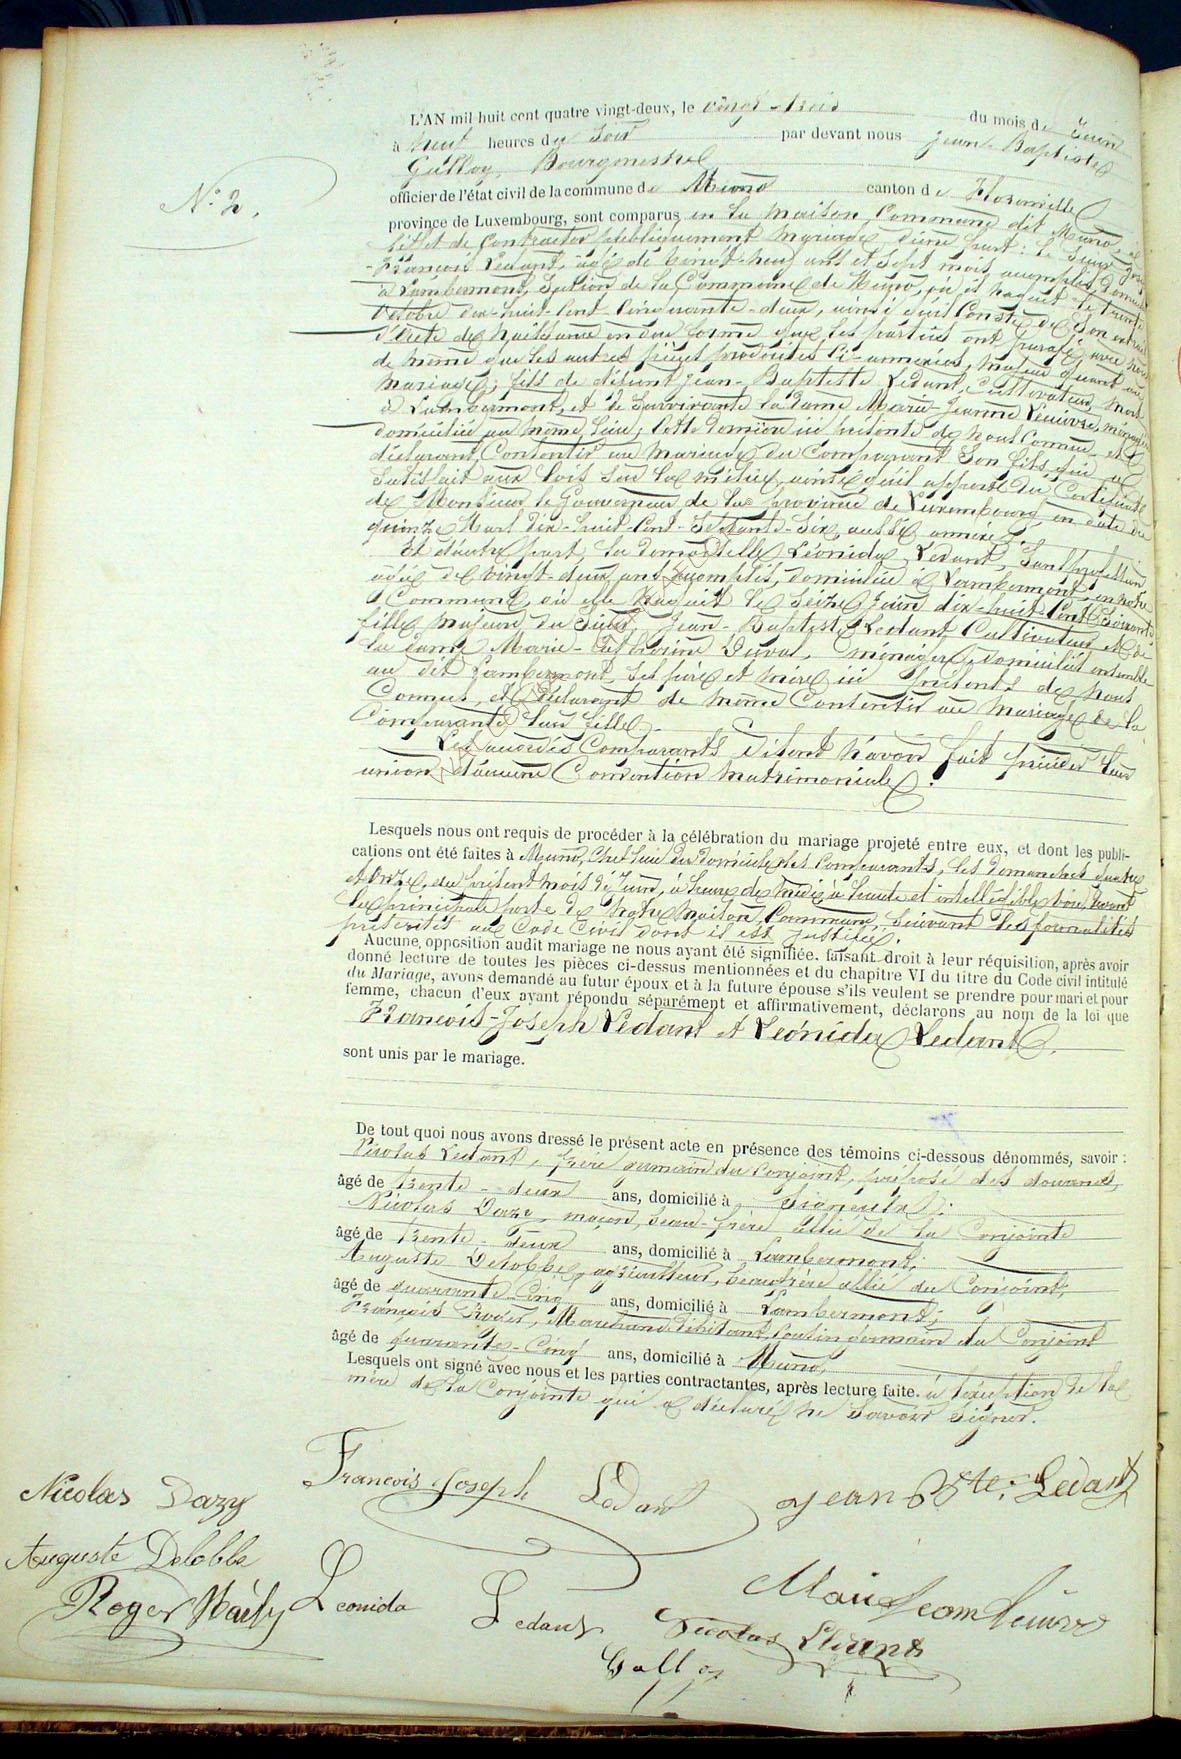 N.° 2.
L'AN mil huit cent quatre vingt-deux, le vingt-trois du mois de Juin
à neuf heures du soir par devant nous Jean-Baptiste
Galloy, Bourgmestre
officier de l'état civil de la commune de Muno canton de Florenville
province de Luxembourg, sont comparus en la maison Commune dit Muno
à l'effet de Contracter publiquement Mariage, d'une part: le Sieur
François Ledant, âgé de vingt-neuf ans et sept mois accomplis,
à Lambermont, Section de la Commune de Muno, où il naquit le trente
Octobre dix-huit-Cent-Cinquante-deux, ainsi qu'il Conste de son extrait
d'acte de naissance en due forme que les parties ont paraphé avec nous
de même que les autres pièces produites ci-annexées, majeur quant au
Mariage; fils de défunt Jean-Baptiste Ledant, Cultivateur, mort
à Lambermont, et de Survivante la dame Marie-Jeanne Lemoine, ménagère
domiciliée au même lieu, cette dernière ici présente de nous Connue et
déclarant Consentir au Mariage du Comparant Son fils qui a
Satisfait aux lois sur la milice, ainsi qu'il appert du Certificat
de Monsieur le Gouverneur de la province de Luxembourg en date du
quinze Mars dix-huit-Cent-Septante-Six, aussi annexé.
Et d'autre part, la demoiselle Léonida Ledant, Sans profession
âgée de vingt-deux ans accomplis, domiciliée à Lambermont en notre
Commune, où elle naquit le Seize Juin dix-huit-Cent-Soixante
fille majeure du Sieur Jean-Baptiste Ledant Cultivateur et de
la dame Marie-Catherine Duval, ménagère, domiciliés ensemble
au dit Lambermont, Ses père et mère ici présents de nous
Connus, et déclarant de même Consentir au Mariage de la
Comparante leur fille.
Les accordés Comparants disent n'avoir fait précéder leur
union d'aucune Convention Matrimoniale.
Lesquels nous ont requis de procéder à la célébration du mariage projeté entre eux, et dont les publi-
cations ont été faites à Muno, Chef-lieu du domicile des Comparants, les dimanches quatre
et onze, du présent mois de Juin, à heure de midi, à haute et intelligible voix devant
la principale porte de Notre Maison Commune, Suivant les formalités
prescrites au Code Civil dont il est justifié.
Aucune opposition audit mariage ne nous ayant été signifiée. faisant droit à leur réquisition, après avoir
donné lecture de toutes les pièces ci-dessus mentionnées et du chapitre VI du titre du Code civil intitulé
du Mariage, avons demandé au futur époux et à la future épouse s'ils veulent se prendre pour mari et pour
femme, chacun d'eux ayant répondu séparément et affirmativement, déclarons au nom de la loi que
François-Joseph Ledant et Léonida Ledant
sont unis par le mariage.
De tout quoi nous avons dressé le présent acte en présence des témoins ci-dessous dénommés, savoir :
Nicolas Ledant, frère germain du Conjoint, préposé des douanes,
âgé de trente-deux ans, domicilié à Signeulx;
Nicolas Dazy, maçon, beau-frère allié de la Conjointe
âgé de trente-deux ans, domicilié à Lambermont;
Auguste Delobbe, agriculteur, beau-frère allié du Conjoint,
âgé de quarante-Cinq ans, domicilié à Lambermont;
François Roger, Marchand débitant, Cousin germain du Conjoint
âgé de quarante-Cinq ans, domicilié à Muno,
Lesquels ont signé avec nous et les parties contractantes, après lecture faite. à l'exception de la
mère de la Conjointe qui a déclaré ne Savoir Signer.
François Joseph Ledant
Jean Bte. Ledant
Nicolas Dazy
Auguste Delobbe
Roger
Leonida Ledant
Marie Jeanne
Nicolas Ledant
Galloy